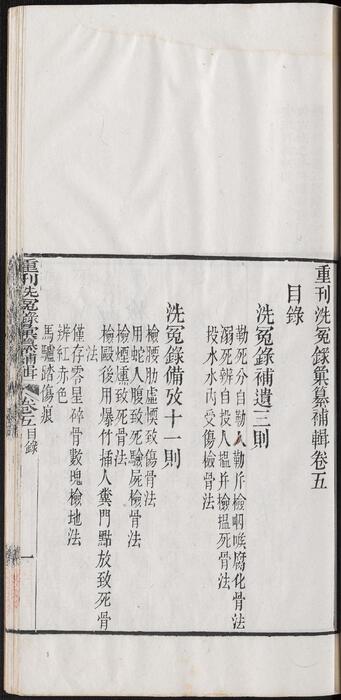 重刊洗冤錄彚纂補輯卷五
目錄
洗冤錄補遺三則
勒死分自勒人勒斥檢咽喉腐化骨法
溺死辨自投人搵斥檢搵死骨法
投水水內受傷檢骨法
洗冤錄備攷十一則
檢腰肋虛愞致傷骨法
用蛇入腹致死驗屍檢骨法
檢煙燻致死骨法
檢毆後用爆竹插人糞門點放致死骨
法
僅存零星碎骨數塊檢地法
辨紅赤色
馬驢踏傷痕
重刊洗冤錄彚纂補輯
卷五目錄
一